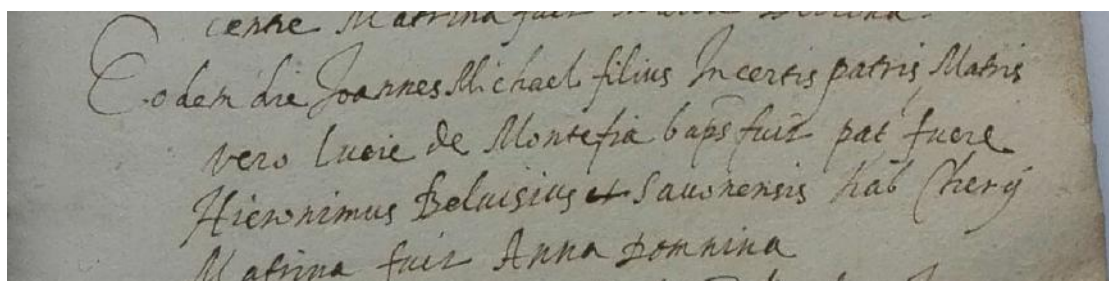 Matrina fuit
Eodem die Joannes Michael filius Incertis patris Matris
vero lucie de Montefia baps fuit pat fuere
Hieronimus Beluisius et Sauonensis hab Cherij
Matrina fuit Anna Domnina